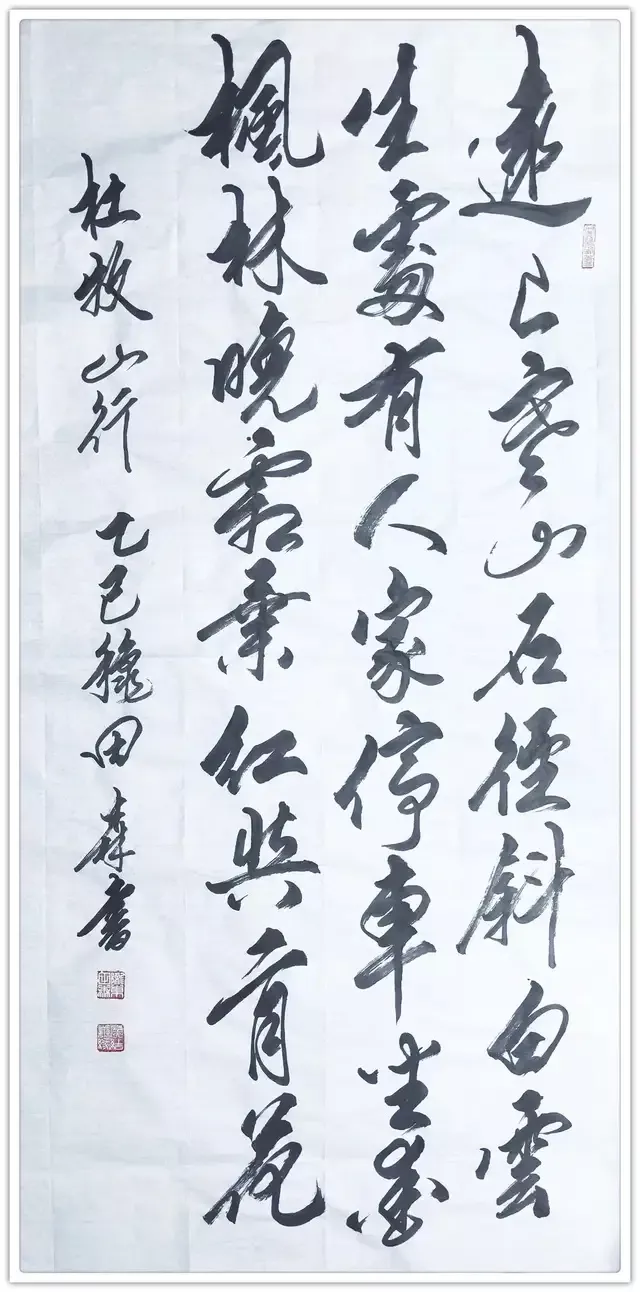 遠上寒山石徑斜白雲
生處有人家停車坐愛
楓林晚霜葉紅與二月花
杜牧山行 乙巳穐田森書